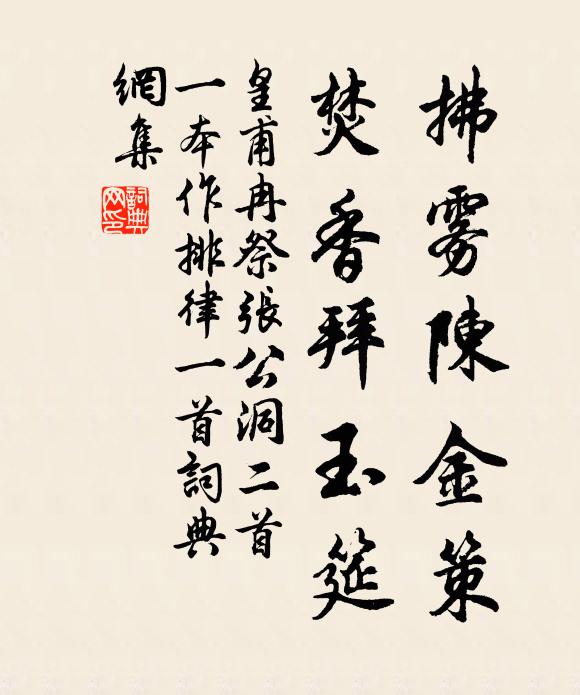 拂雾陳金策
焚香拜玉筵
皇甫冉祭張公洞二首
一本作排律一首詞典
網集
詞典網印